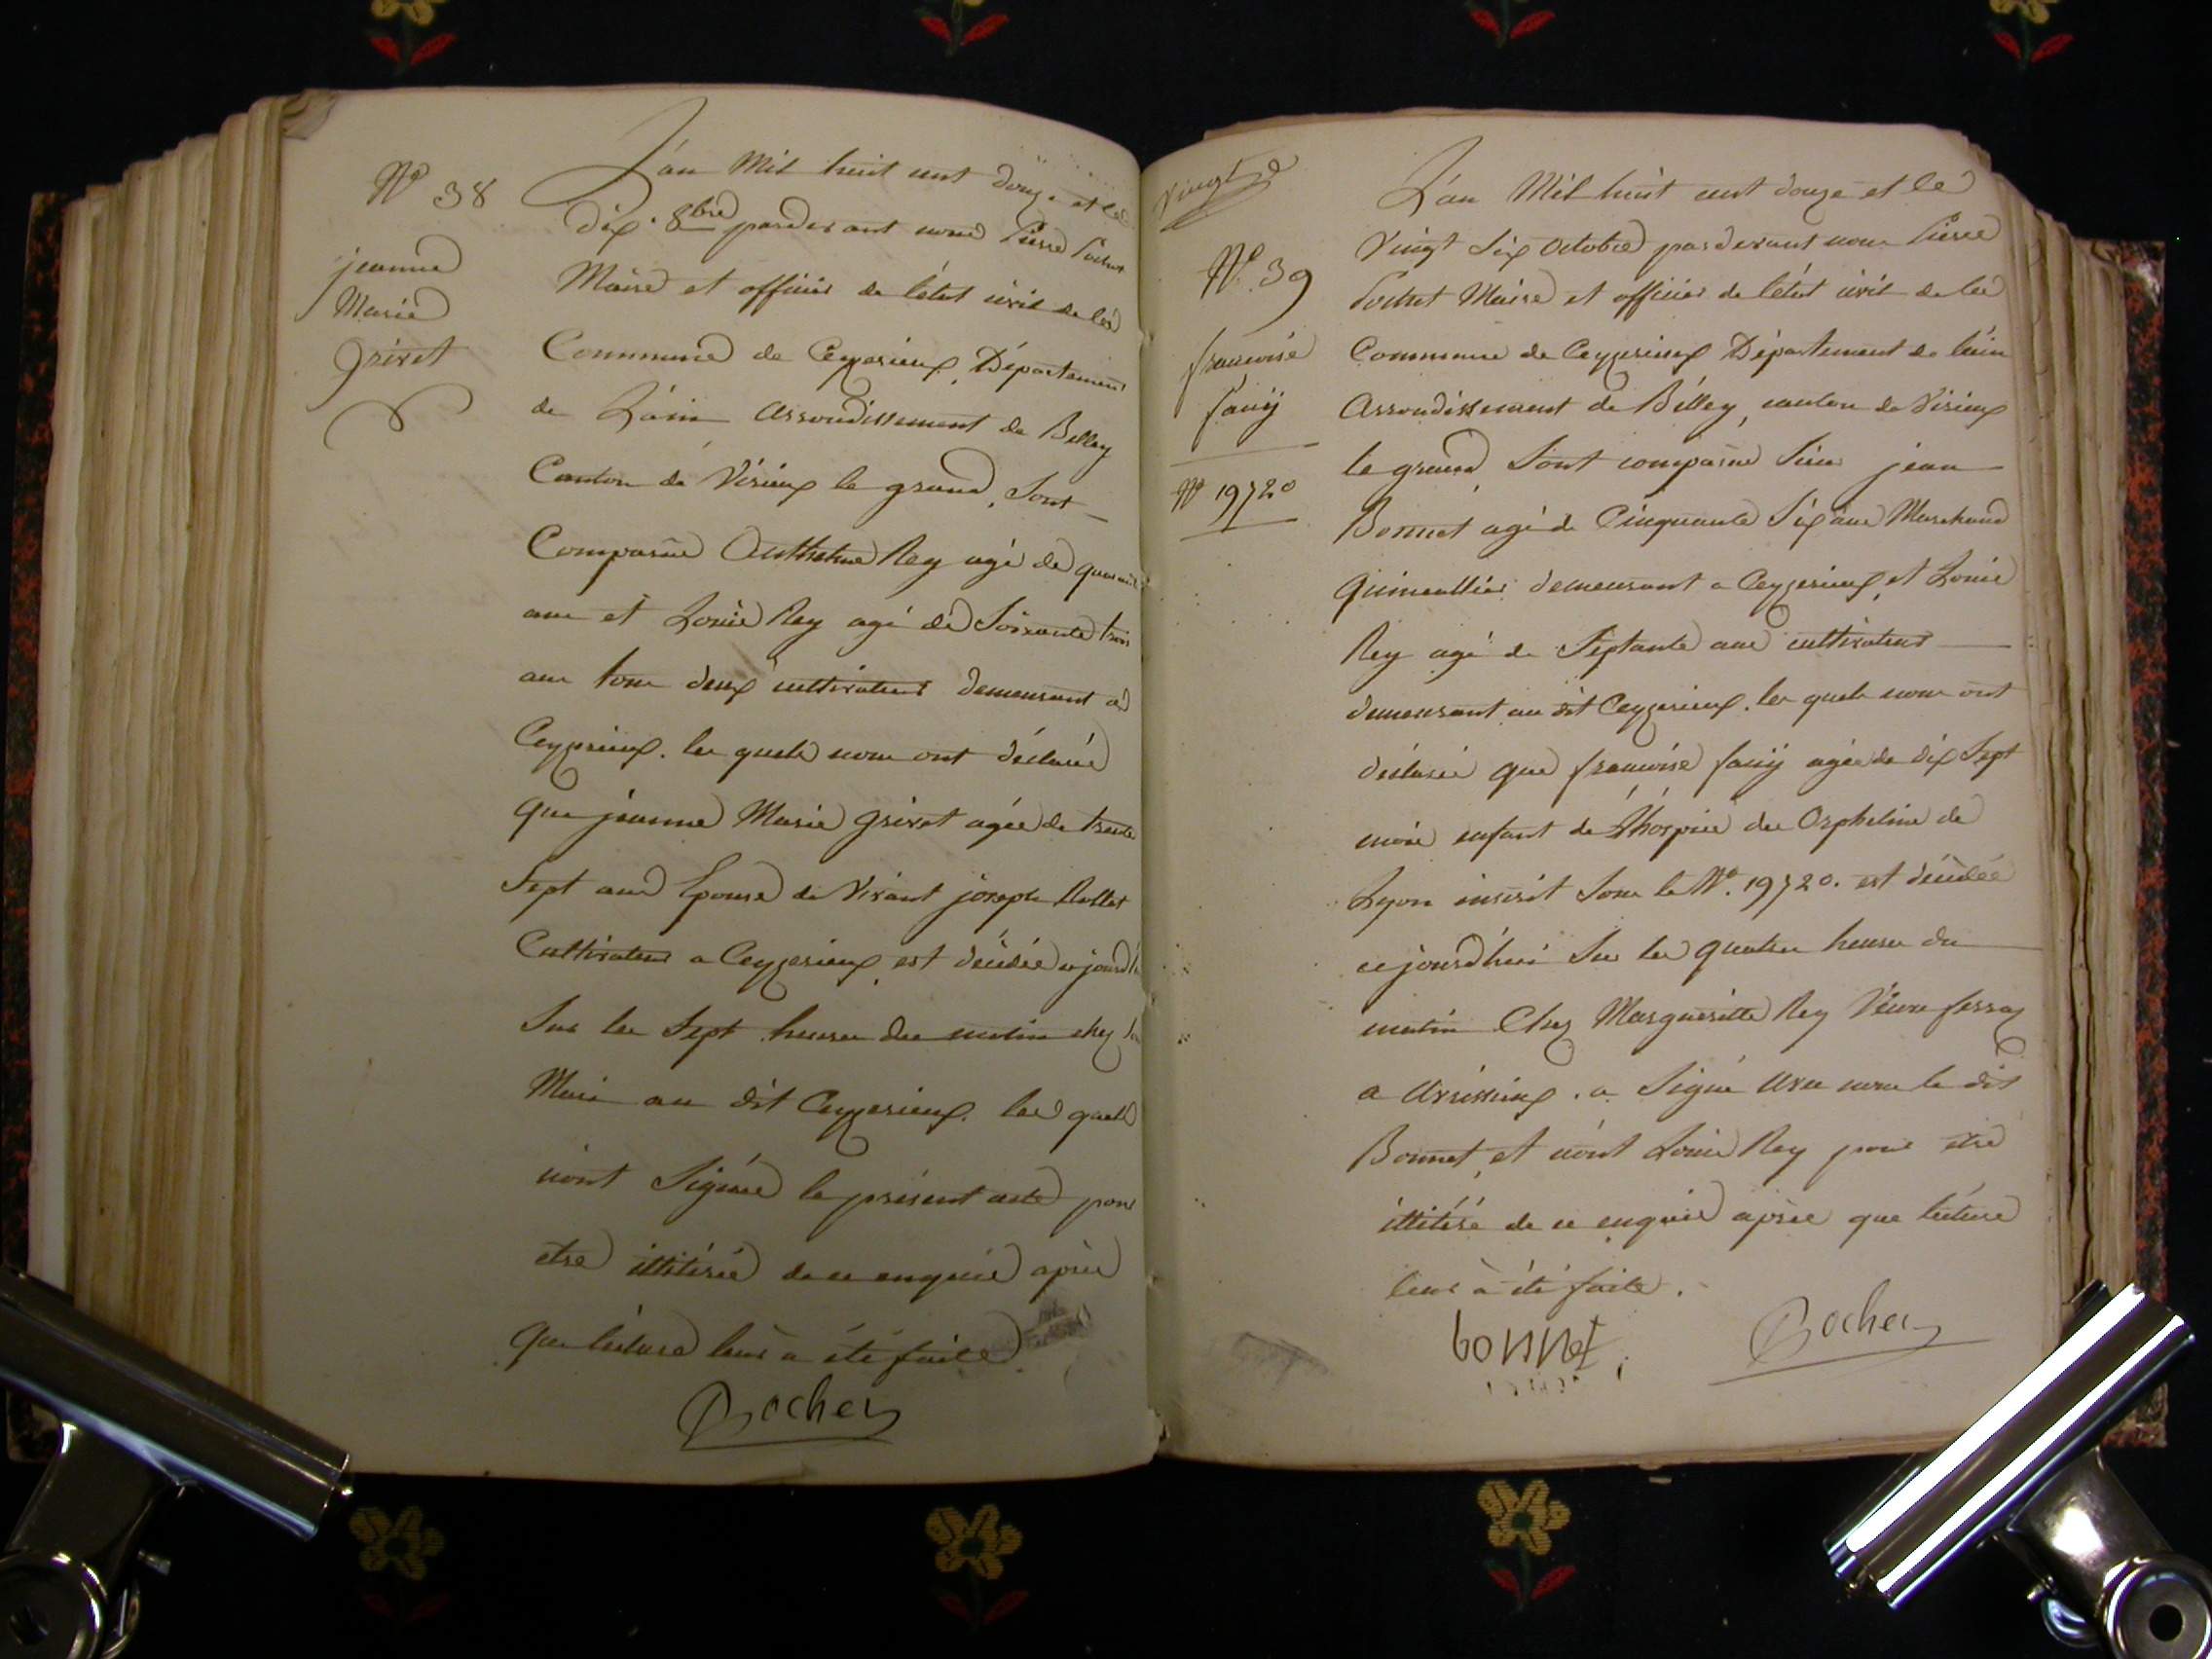 N° 38
jeanne
Marie
grivet
L'an Mil huit cent douze et le
dix 8bre pardevant nous Pierre Pochet
Maire et officier de l'état civil de la
Commune de Ceyzerieux, Département
de L'ain arrondissement de Belley
Canton de Virieux le grand, Sont
Comparus Anthelme Rey agé de quarante
ans et Louis Rey agé de Soixante trois
ans tous deux cultivateurs demeurant a
Ceyzerieux. les quels nous ont déclaré
que jeanne Marie grivet agée de trente
Sept ans Epouse de Vivant joseph Rollet
Cultivateur a Ceyzerieux, est décédée cejourd'h
Sur les Sept heures du matin chez
Mari au dit Ceyzerieux. les quels
n'ont Signée le présent acte pour
etre illitérés de ce enquis après
que lécture leur a été faite
Pochet
Vingt
N° 39
francoise
fanÿ
N° 19720
L'an Mil huit cent douze et le
Vingt Six Octobre pardevant nous Pierre
Pochet Maire et officier de l'état civil de la
Commune de Ceyzerieux Département de l'ain
Arrondissement de Bélley, canton de Virieux
le grand, Sont comparus Sieur jean
Bonnet agé de Cinquante Six ans Marchand
quincallier demeurant a Ceyzerieux, et Louis
Rey agé de Septante ans cultivateur
demeurant au dit Ceyzerieux. les quels nous ont
déclaré que francoise fanÿ agée de dix Sept
mois enfant de L'hospice des Orphelins de
Lyon inscrit Sous le N°. 19720. est décédée
cejourd'hui Sur les quatre heures du
matin Chez Margueritte Rey Veuve ferraz
a Avrissieux. a Signé avec nous le dit
Bonnet, et n'ont Louis Rey pour etre
illitéré de ce enquis après que lécture
leur à été faite.
bonnet
Pochet